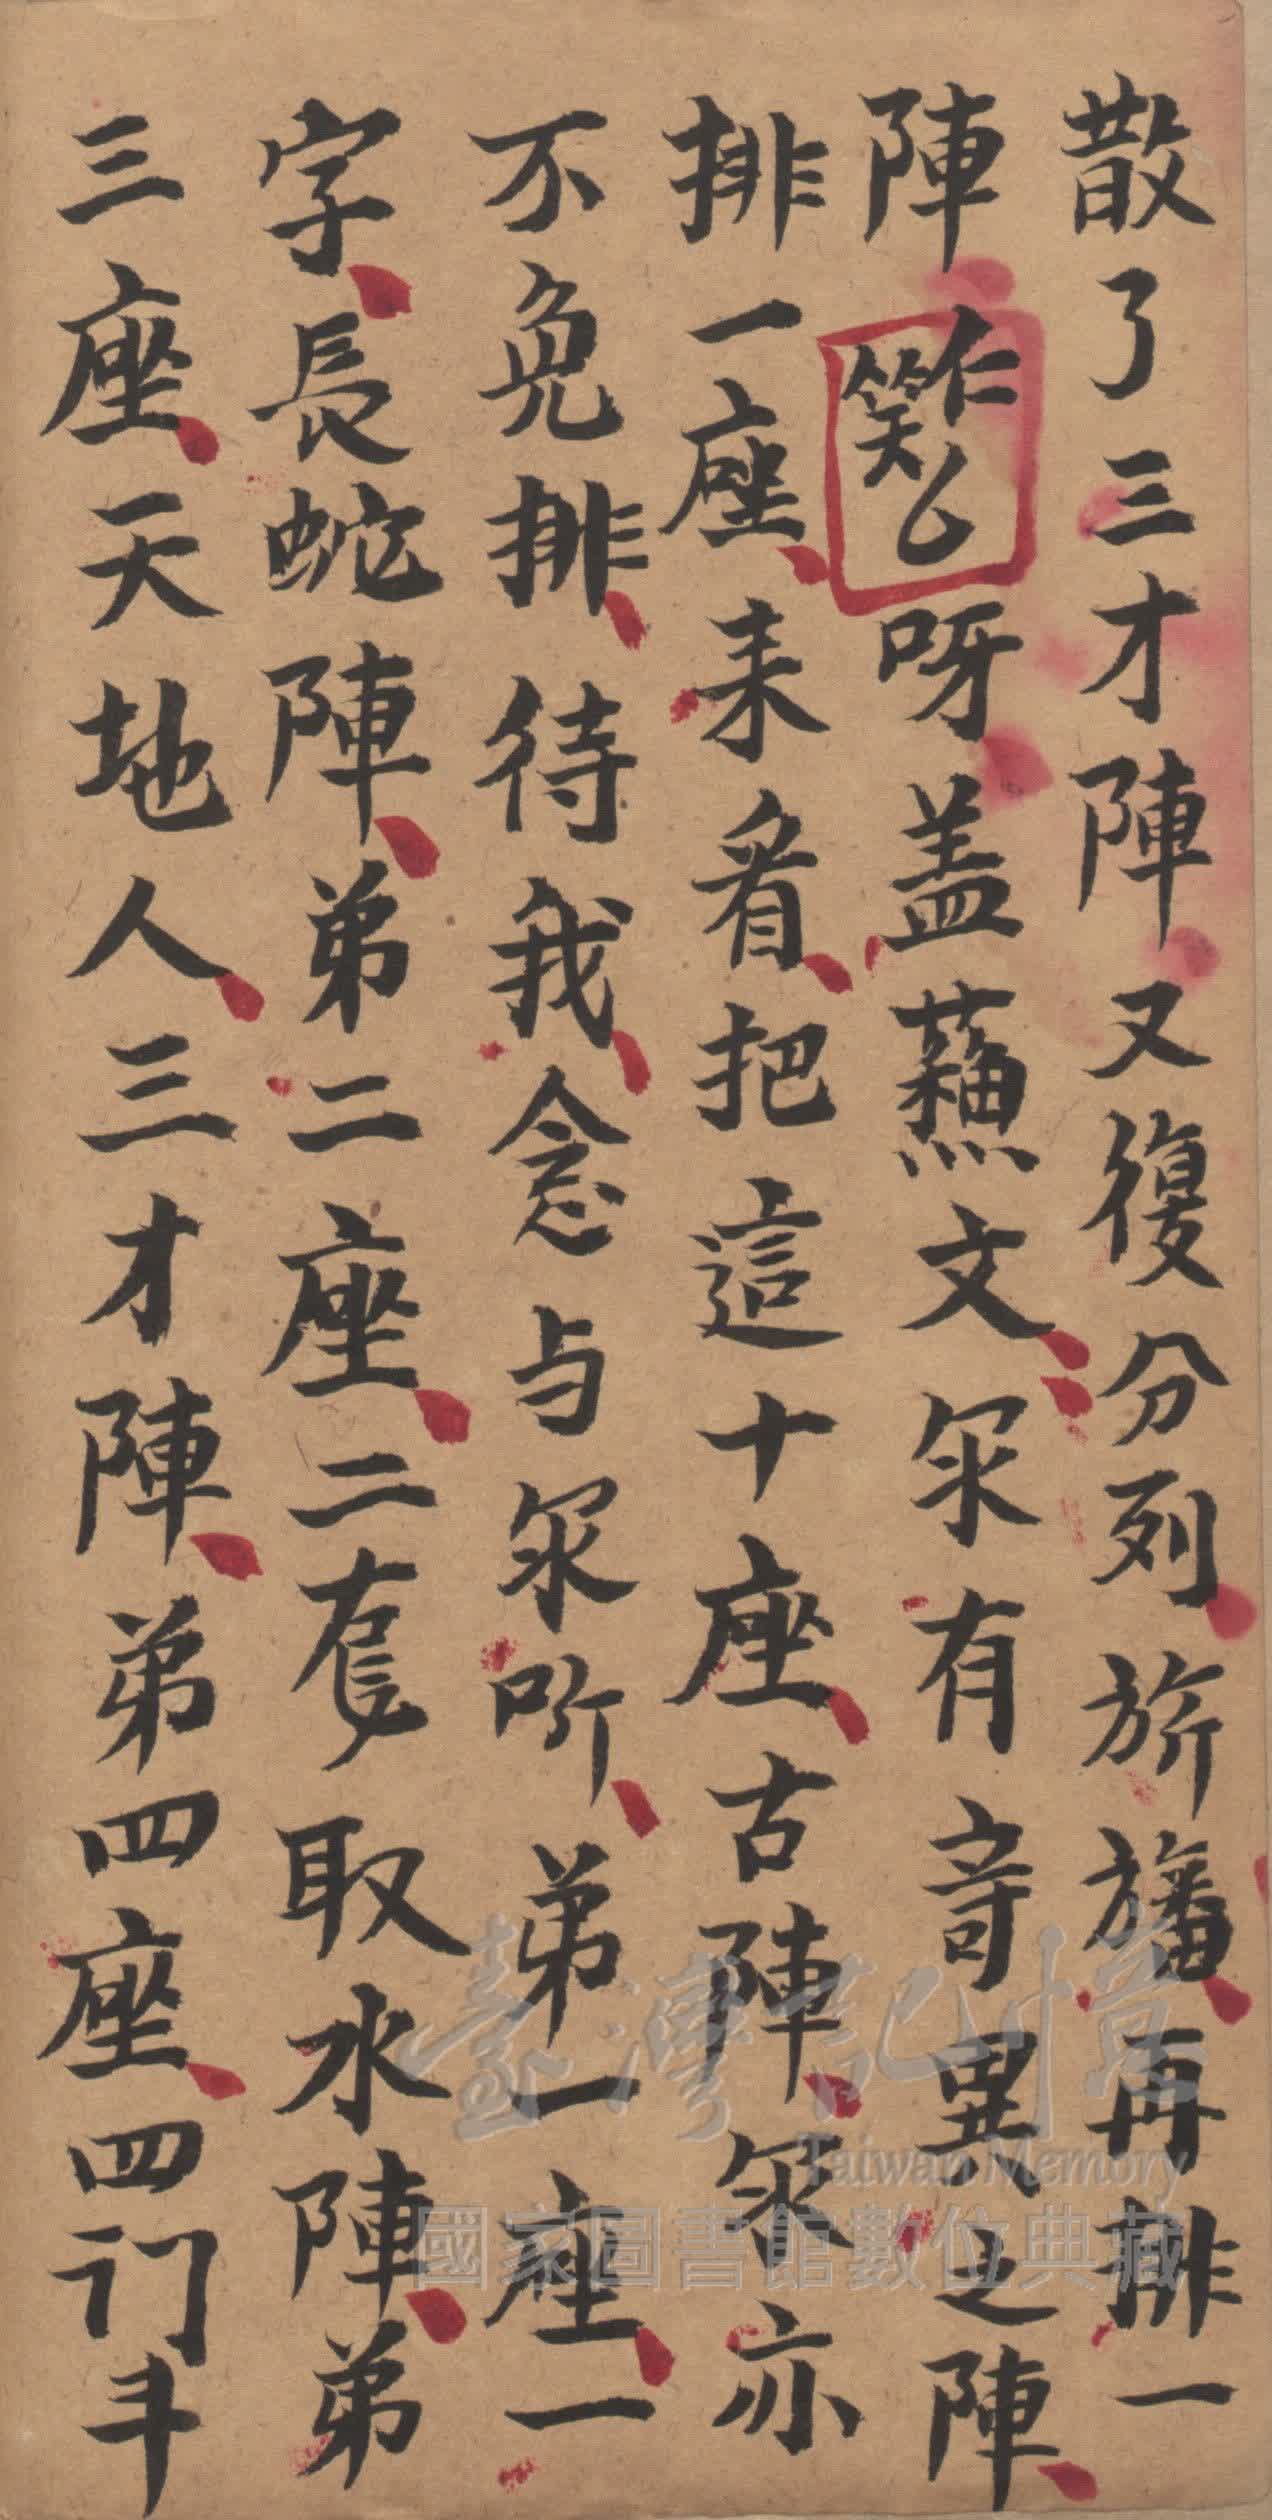 散了三才陣又復分列旂旛再排一
陣仁笑乙呀盖蘓文罙有竒異之陣
排一座來看把這十座古陣罙亦
不免排待我念与罙听弟一座一
字長蛇陣弟二座二竜取水陣弟
三座天地人三才陣弟四座四门斗
臺灣記憶
Taiwan Memory
國家圖書館數位典藏